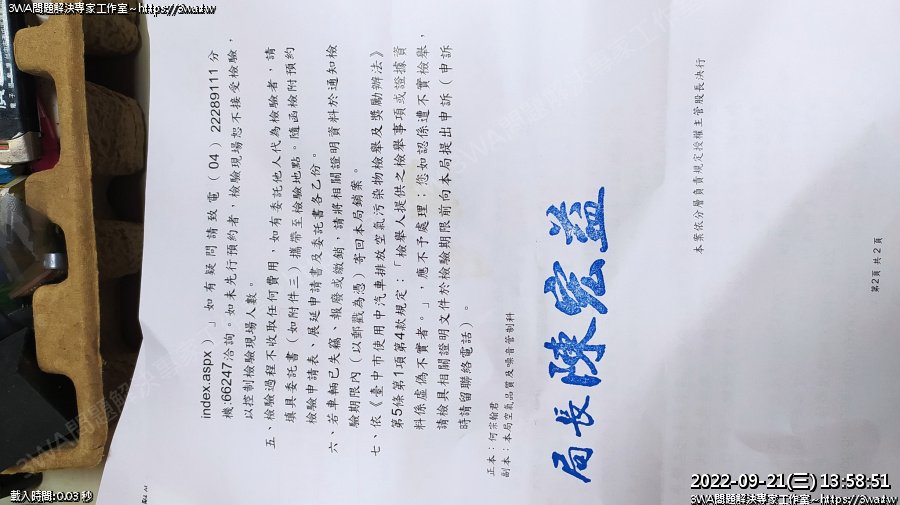 3WA問題解決專家工作室~https://3wa.tw
index.aspx）」如有疑問請致電（04）22289111分
機:66247洽詢。如未先行預約者，檢驗現場恕不接受檢驗，
以控制檢驗現場人數。
五、檢驗過程不收取任何費用，如有委託他人代為檢驗者，請
填具委託書（如附件三）攜帶至檢驗地點。隨函檢附預約
檢驗申請表、展延申請書及委託書各乙份。
六、若車輛已失竊、報廢或繳銷，請將相關證明資料於通知檢
驗期限內（以郵戳為憑）寄回本局銷案。
七、依《臺中市使用中汽車排放空氣污染物檢舉及獎勵辦法》
第5條第1項第4款規定：「檢舉人提供之檢舉事項或證據資
料係虛偽不實者。」，應不予處理；您如認係遭不實檢舉，
請檢具相關證明文件於檢驗期限前向本局提出申訴（申訴
時請留聯絡電話）。
正本：何宗翰君
副本：本局空氣品質及噪音管制科
局長陳宏益
本案依分層負責規定授權主管股長決行
第2頁 共2頁
載入時間:0.03 秒
2022-09-21(三) 13:58:51
3WA問題解決專家工作室~https://3wa.tw